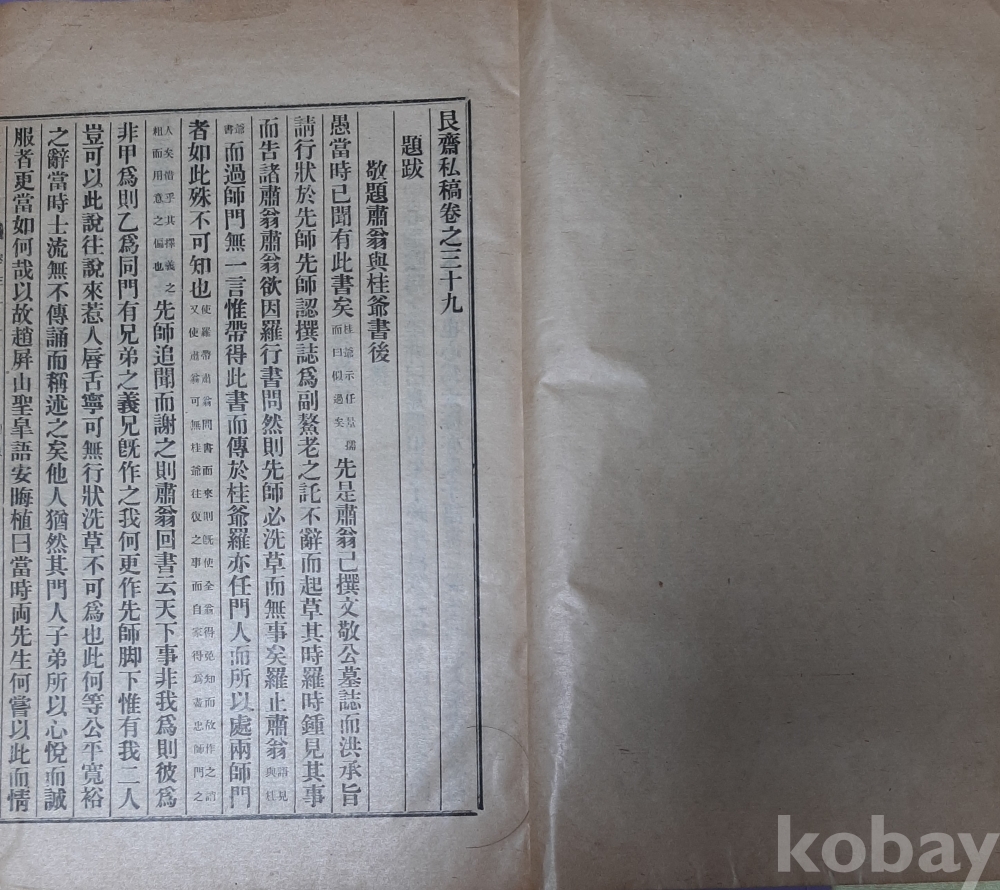 艮齋私稿卷之三十九
題跋
敬題肅翁與桂爺書後
愚當時已聞有此書矣桂爺示任景孺而曰惧過矣先是肅翁已撰文敬公墓誌而洪承旨
請行狀於先師先師認撰誌爲副鰲老之託不辭而起草其時羅時鍾見其事
而告諸肅翁肅翁欲因羅行書問然則先師必洗草而無事矣羅止肅翁請見與桂
爺書而過師門無一言惟帶得此書而傳於桂爺羅亦任門人而所以處兩師門
者如此殊不可知也使羅帶肅翁問書而來則旣使全翁得免知而故作之謂又使肅翁可無桂爺往復之事而自家得爲盡忠師門之
人矣惜乎其擇義之粗而用意之偏也先師追聞而謝之則肅翁回書云天下事非我爲則彼爲
非甲爲則乙爲同門有兄弟之義兄旣作之我何更作先師脚下惟有我二人
豈可以此說往說來惹人唇舌寧可無行狀洗草不可爲也此何等公平寬裕
之辭當時士流無不傳誦而稱述之矣他人猶然其門人子弟所以心悅而誠
服者更當如何哉以故趙屛山聖皐語安晦植曰當時兩先生何嘗以此而情
kobay